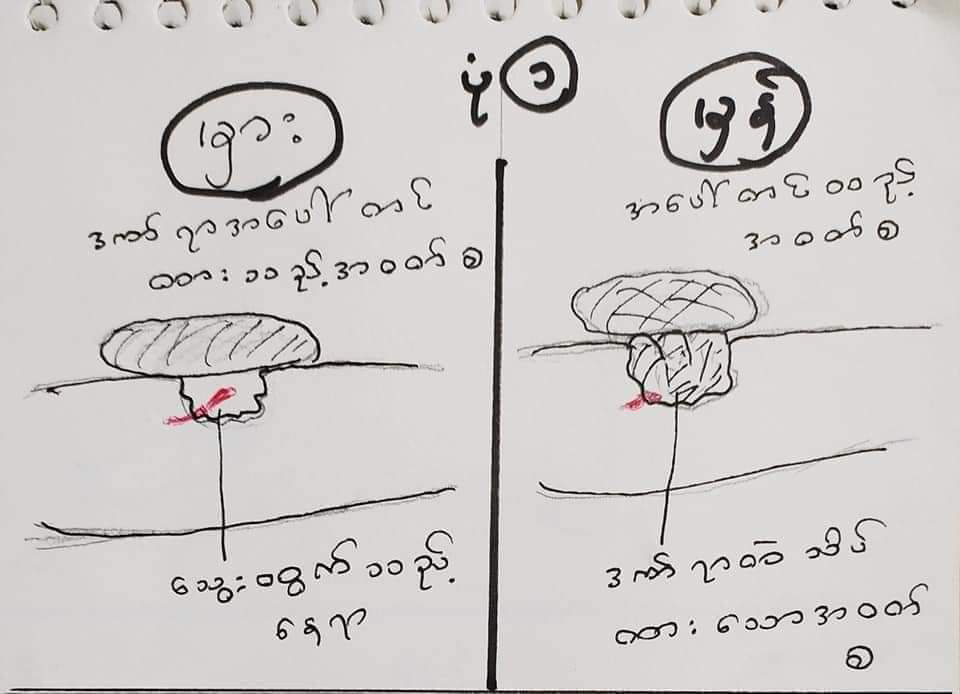 ပုံ ၁
မှား
ဒဏ်ရာအပေါ်တင်
ထားသည့်အဝတ်စ
သွေးထွက်သည့်
နေရာ
မှန်
အပေါ်တင်သည့်
အဝတ်စ
ဒဏ်ရာထဲသိပ်
ထားသောအဝတ်
စ